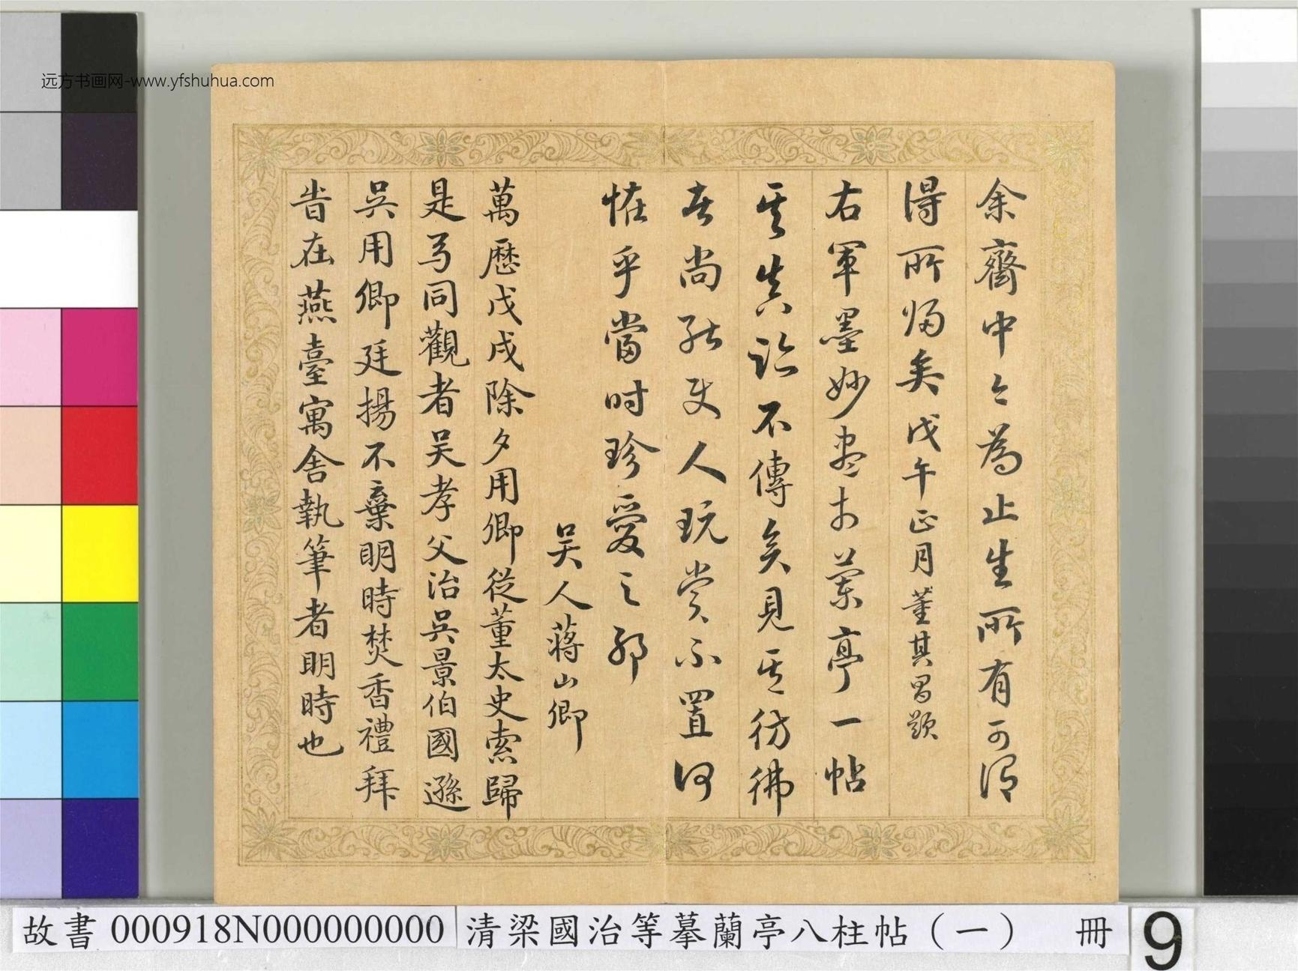 余齋中今為止生所有可謂
得所歸矣戊午正月董其昌題
右軍墨妙盡於蘭亭一帖
其真跡不傳矣見其彷彿
者尚能使人玩賞不置何
怪乎當時珍愛之耶
吳人蔣山卿
萬歷戊戌除夕用卿從董太史索歸
是日同觀者吳孝父治吳景伯國遜
吳用卿廷揚不棄明時焚香禮拜
旹在燕臺寓舍執筆者明時也
远方书画网-www.yfshuhua.com
故書 000918N000000000 清梁國治等摹蘭亭八柱帖（一） 冊 9